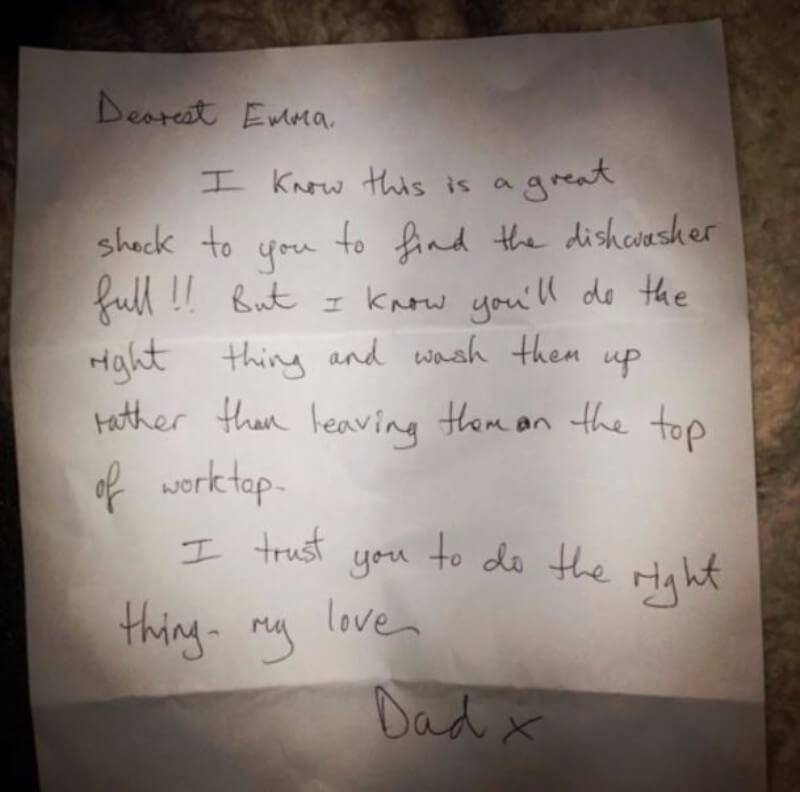 Dearest Emma.
I know this is a great
shock to you to find the dishwasher
full!! But I know you'll do the
right thing and wash them up
rather than leaving them on the top
of worktop-
I trust you to do the right
thing- my love
Dad x